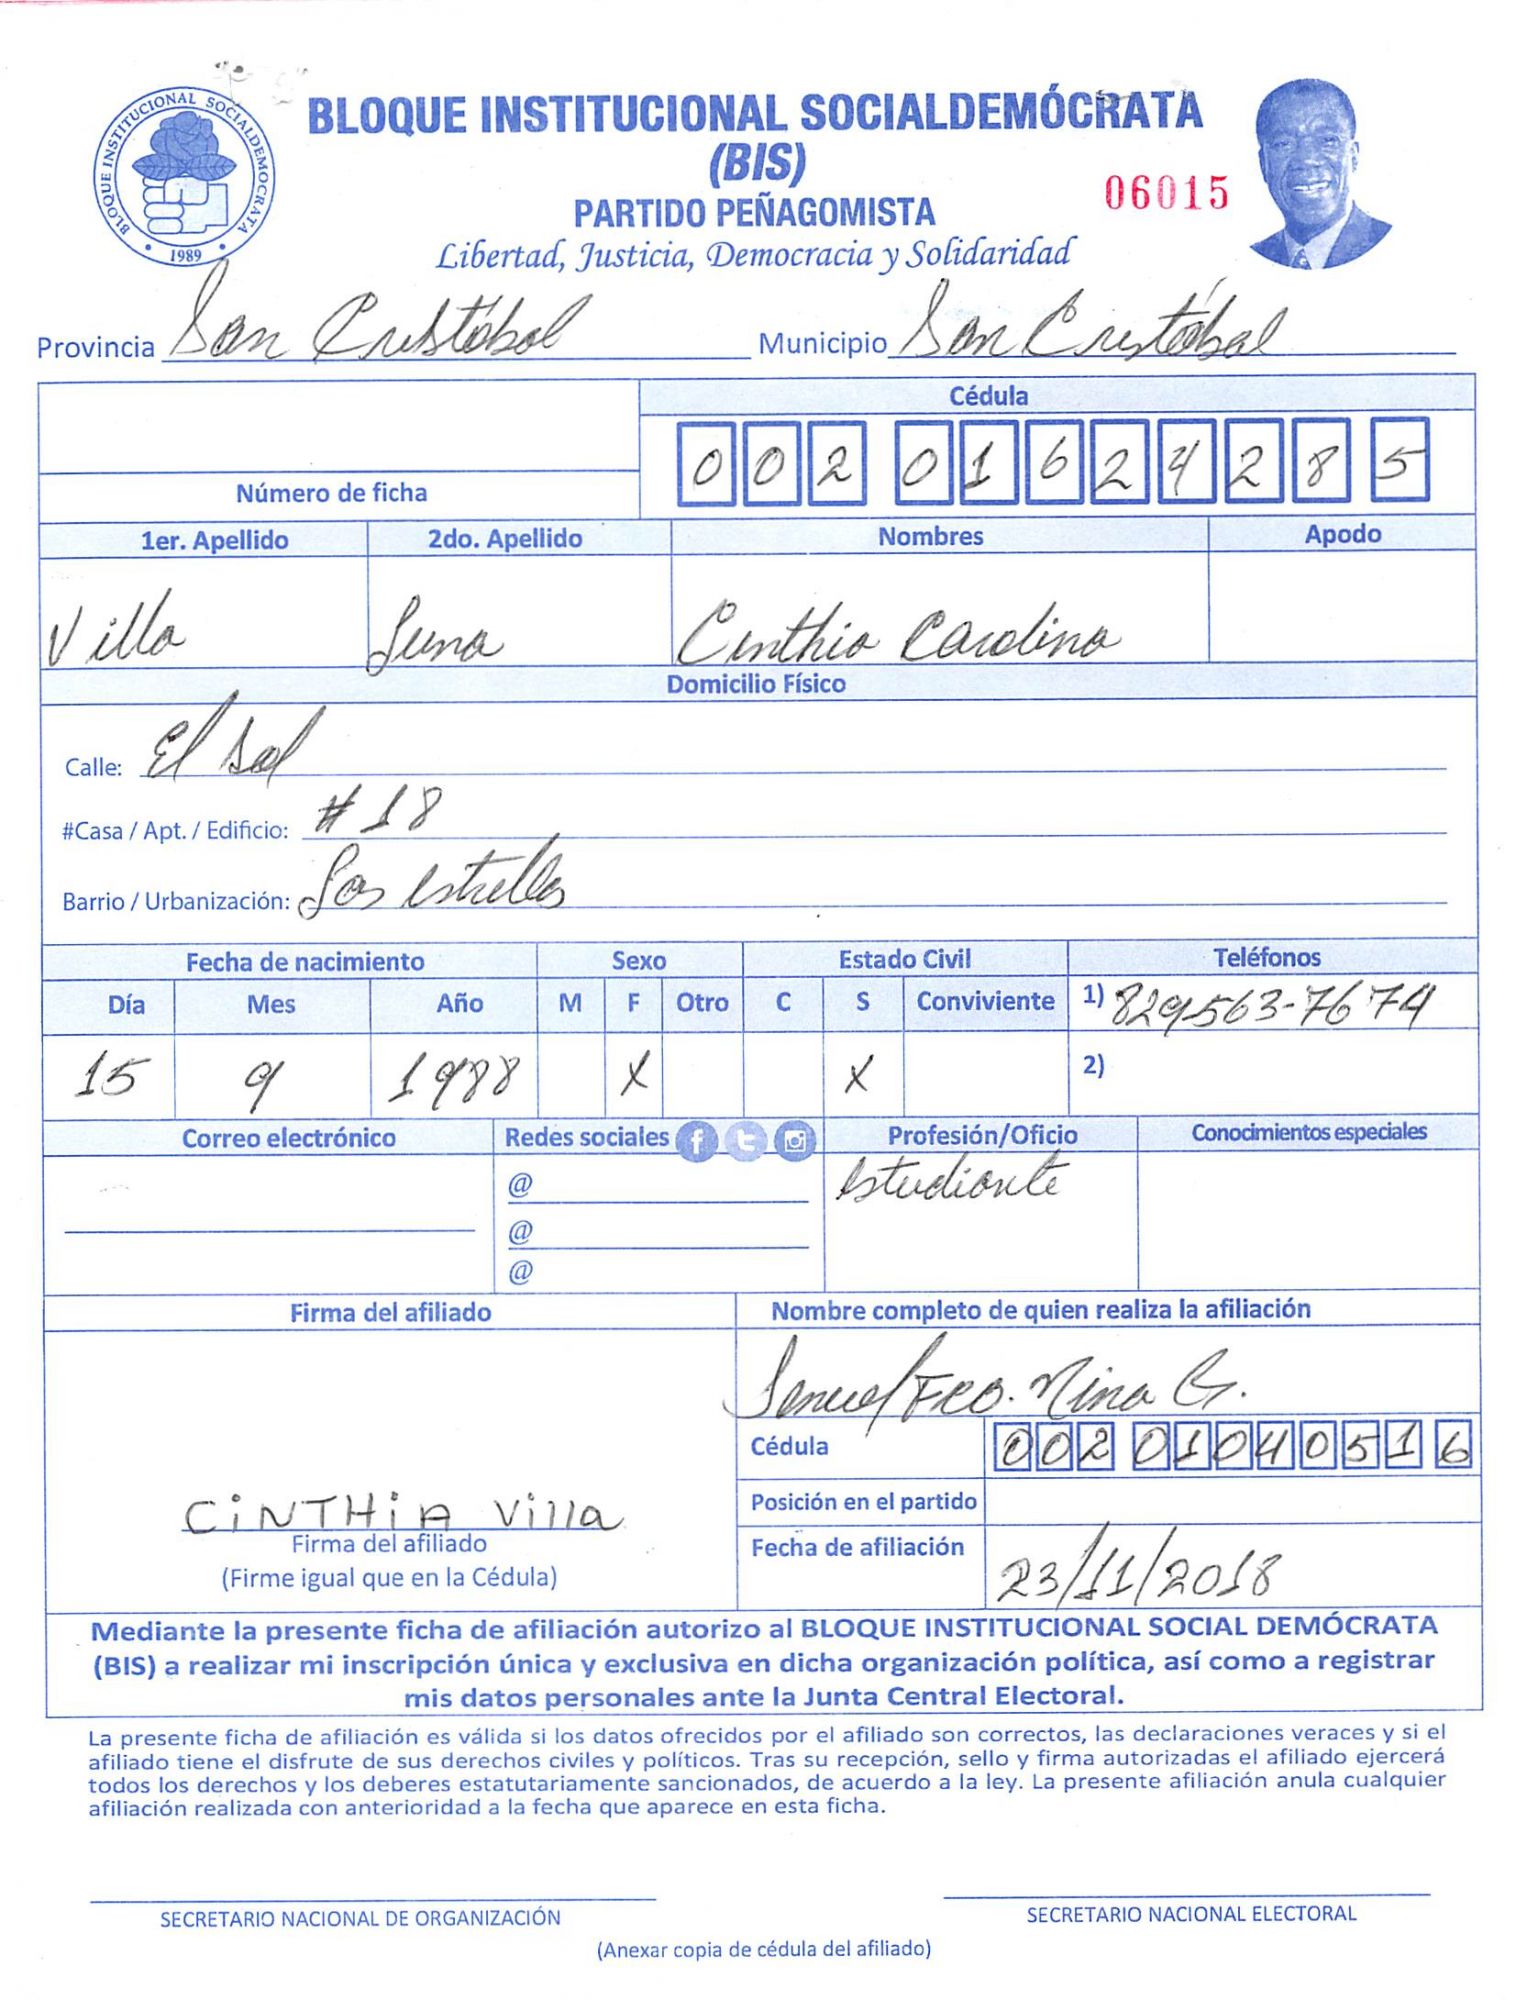 BLOQUE INSTITUCIONAL SOCIALDEMÓCRATA
BLOQUE INSTITUCIONAL SOCIALDEMÓCRATA
1989
(BIS)
PARTIDO PEÑAGOMISTA
06015
Libertad, Justicia, Democracia y Solidaridad
Provincia San Cristóbal Municipio San Cristóbal
Cédula
002 0162428 5
Número de ficha
1er. Apellido 2do. Apellido Nombres Apodo
Villa Luna Cinthia Carolina
Domicilio Físico
Calle: El Sol
#Casa / Apt. / Edificio: #18
Barrio / Urbanización: Las estrellas
Fecha de nacimiento Sexo Estado Civil Teléfonos
Día Mes Año M F Otro C S Conviviente 1) 829563-7674
15 9 1988 X X 2)
Correo electrónico Redes sociales Profesión/Oficio Conocimientos especiales
@ estudiante
@
@
Firma del afiliado Nombre completo de quien realiza la afiliación
Samuel Fco. Nina G.
Cédula 002 0104051 6
Posición en el partido
CiNTHiA Villa
Firma del afiliado
(Firme igual que en la Cédula)
Fecha de afiliación 23/11/2018
Mediante la presente ficha de afiliación autorizo al BLOQUE INSTITUCIONAL SOCIAL DEMÓCRATA
(BIS) a realizar mi inscripción única y exclusiva en dicha organización política, así como a registrar
mis datos personales ante la Junta Central Electoral.
La presente ficha de afiliación es válida si los datos ofrecidos por el afiliado son correctos, las declaraciones veraces y si el
afiliado tiene el disfrute de sus derechos civiles y políticos. Tras su recepción, sello y firma autorizadas el afiliado ejercerá
todos los derechos y los deberes estatutariamente sancionados, de acuerdo a la ley. La presente afiliación anula cualquier
afiliación realizada con anterioridad a la fecha que aparece en esta ficha.
SECRETARIO NACIONAL DE ORGANIZACIÓN SECRETARIO NACIONAL ELECTORAL
(Anexar copia de cédula del afiliado)